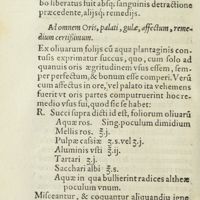 bo liberatus fuit absq; sanguinis detractione
præcedente, alijsq; remedijs.
Ad omnem Oris, palati, gulæ, affectum, reme-
dium certissimum.
Ex oliuarum folijs cū aqua plantaginis con-
tusis exprimatur succus, quo, cum solo ad
quaiuis oris ægritudinem vsus essem, sem-
per perfectum, & bonum esse comperi. Verū
cum affectus in ore, vel palato ita vehemens
fuerit vt oris partes computruerint hoc re-
medio vsus sui, quod sic se habet:
R. Succi supra dicti id est, foliorum oliuarū
Aquæ ros. Sing. poculum dimidium
Mellis ros. ℥.j.
Pulpæ cassiæ ʒ.s. vel ʒ.j.
Aluminis vsti ʒ.ij.
Tartari ʒ.j.
Sacchari albi ℥.s.
Aquæ in qua bullierint radices altheæ
poculum vnum.
Misceantur, & coquantur aliquandiu igne